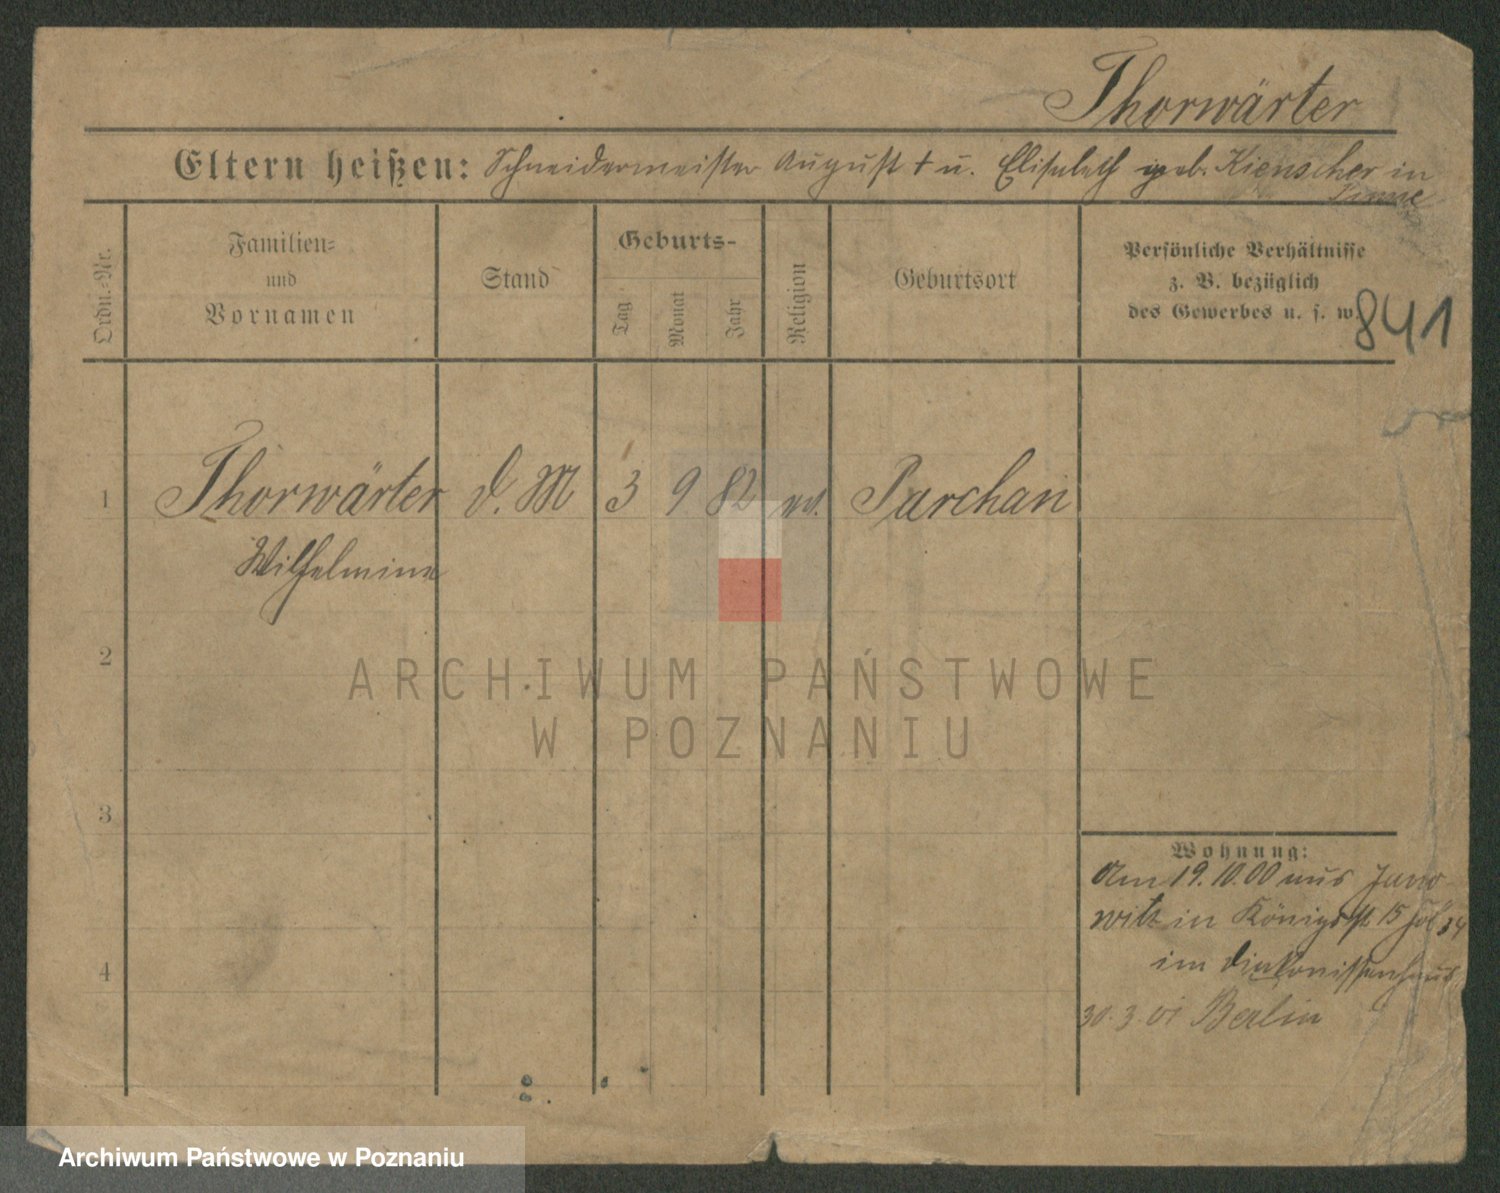 Thorwärter
Eltern heißen: Schneidermeister August † u. Elisabeth geb. Kienscher in
Pinne
Ordn.-Nr.
Familien-
und
Vornamen
Stand
Geburts-
Tag
Monat
Jahr
Religion
Geburtsort
Persönliche Verhältnisse
z. B. bezüglich
des Gewerbes u. s. w.
841
1 Thorwärter d. M 3 9 82 ev. Parchan
Wilhelmine
2
ARCHIWUM PAŃSTWOWE
W POZNANIU
3
Wohnung:
Am 19.10.00 aus Jano
witz in Königsst 15
im Diakonissenhaus
4
30.3.01 Berlin
Archiwum Państwowe w Poznaniu